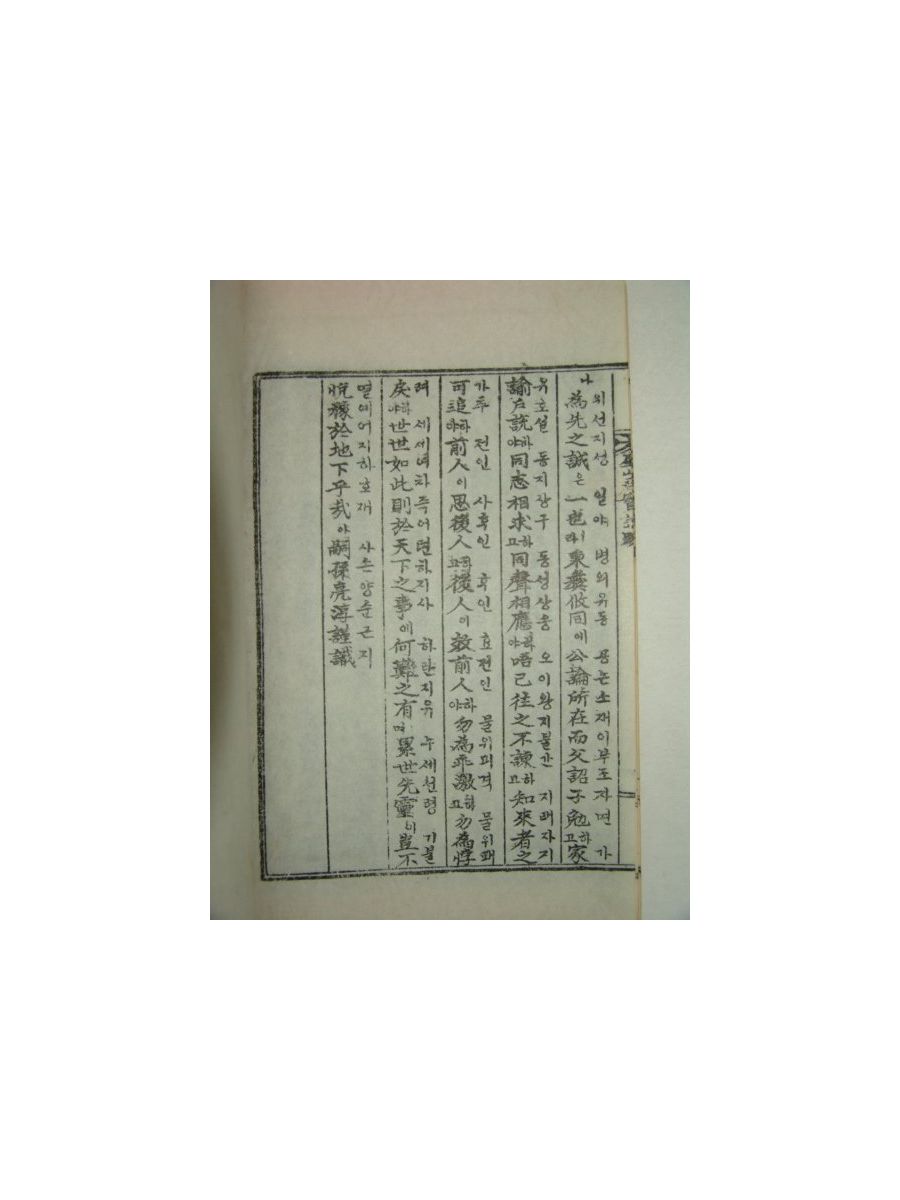 나 위선지성 일야 병의유동 공논소재이부조자면 가
為先之誠은 一也라 秉彝攸同에 公論所在而父詔子勉하고 家
유호설 동지상구 동성상응 오이왕지불간 지래자지
諭戶說하야 同志相求하고 同聲相應하야 悟已往之不諫하고 知來者之
가추 전인 사후인 후인 효전인 물위괴격 물위패
可追하야 前人이 思後人하고 後人이 效前人하야 勿為乖激하고 勿為悖
려 세세여차즉어텬하지사 하란지유 누세선령 기불
戾하야 世世如此則於天下之事에 何難之有며 累世先靈이 豈不
열예어지하호재 사손양순근지
悅豫於地下乎哉아 嗣孫亮淳謹識